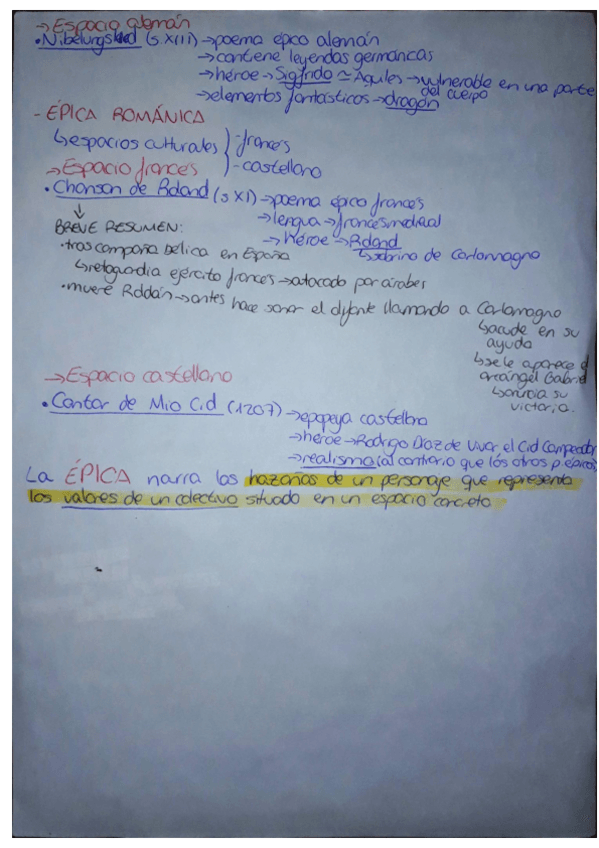 →Espacio alemán
•Nibelungslied (s.XIII)→poema épico alemán
→contiene leyendas germánicas
→héroe→Sigfrido≃Aquiles→vulnerable en una parte del cuerpo
→elementos fantásticos→dragón
- ÉPICA ROMÁNICA
↳espacios culturales -francés
-castellano
→Espacio francés
•Chanson de Roland (s XI)→poema épico francés
→lengua→francés medieval
→héroe→Roland
↳sobrino de Carlomagno
BREVE RESUMEN:
•tras campaña bélica en España
↳retaguardia ejército francés→atacado por árabes
•muere Roldán→antes hace sonar el olifante llamando a Carlomagno
↳acude en su ayuda
↳se le aparece el arcángel Gabriel
↳anuncia su victoria.
→Espacio castellano
•Cantar de Mio Cid (1207)→epopeya castellana
→héroe→Rodrigo Díaz de Vivar el Cid Campeador
→realismo (al contrario que los otros p.épicos)
La ÉPICA narra las hazañas de un personaje que representa
los valores de un colectivo situado en un espacio concreto